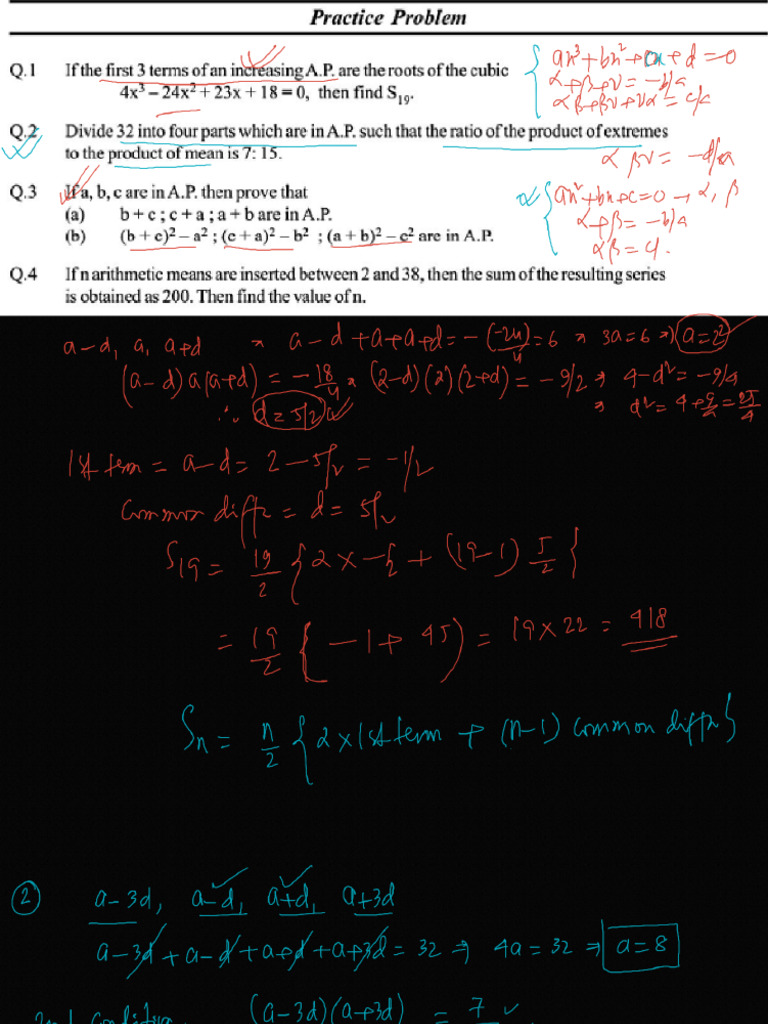 Practice Problem
Q.1 If the first 3 terms of an increasing A.P. are the roots of the cubic
4x³ – 24x² + 23x + 18 = 0, then find S₁₉.
Q.2 Divide 32 into four parts which are in A.P. such that the ratio of the product of extremes
to the product of mean is 7: 15.
Q.3 If a, b, c are in A.P. then prove that
(a) b + c ; c + a ; a + b are in A.P.
(b) (b + c)² – a² ; (c + a)² – b² ; (a + b)² – c² are in A.P.
Q.4 If n arithmetic means are inserted between 2 and 38, then the sum of the resulting series
is obtained as 200. Then find the value of n.
ax³ + bx² + cx + d = 0
α+β+γ = -b/a
αβ+βγ+γα = c/a
αβγ = -d/a
ax²+bx+c=0 → α, β
α+β = -b/a
αβ =
a-d, a, a+d ⇒ a-d+a+a+d = -(-24)/4 = 6 ⇒ 3a=6 ⇒ a=2
(a-d)a(a+d) = -18/4 ⇒ (2-d)(2)(2+d) = -9/2 ⇒ 4-d² = -9/4
⇒ d² = 4+9/4 = 25/4
∴ d = 5/2
1st term = a-d = 2-5/2 = -1/2
Common diff = d = 5/2
S₁₉ = 19/2 { 2 × -1/2 + (19-1) 5/2 }
= 19/2 { -1 + 45 ) = 19×22 = 418
Sn = n/2 { 2×1st term + (n-1) common diffn }
2 a-3d, a-d, a+d, a+3d
a-3d + a-d + a+d + a+3d = 32 ⇒ 4a = 32 ⇒ a=8
(a-3d)(a+3d) = 7